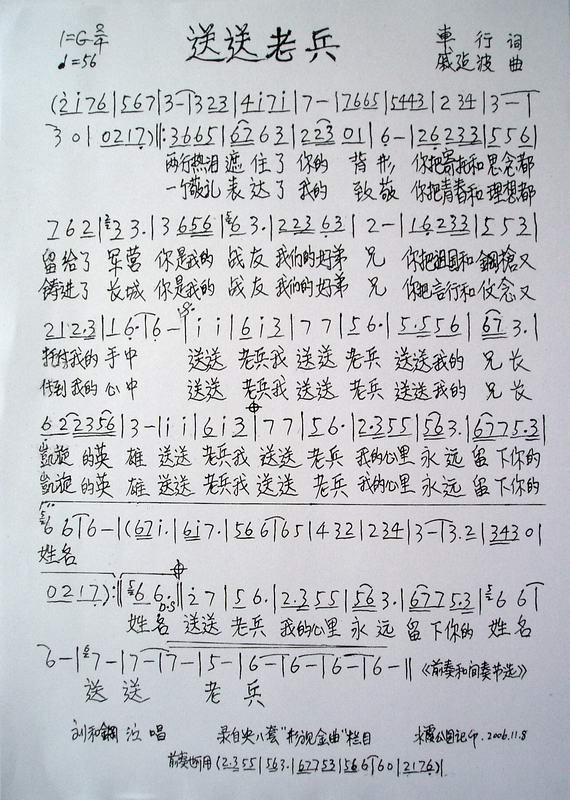 1=G 2/4 送送老兵 車行 词
♩=56 戚建波 曲
(2i76|567|3-|323|4i7i|7-|7665|5443|234|3-|
30|0217)‖:3665|6763|22301|6-|26233|556|
两行热泪遮住了你的背影 你把寄托和思念都
一个敬礼表达了我的致敬 你把青春和理想都
762|33.|3656|63.|22363|2-|16233|553|
留给了军营 你是我的战友我们的好弟兄 你把祖国和鋼槍又
铸进了长城 你是我的战友我们的好弟兄 你把言行和仗念又
2123|16.|6-|ii|6i3|77|56.|5.556|673.|
托付我的手中 送送老兵我送送老兵 送送我的兄长
传到我的心中 送送老兵我送送老兵 送送我的兄长
622356|3-|ii|6i3|77|56.|2.355|563.|6775.3|
凱旋的英雄 送送老兵我送送老兵 我的心里永远留下你的
凱旋的英雄 送送老兵我送送老兵 我的心里永远留下你的
66|6-|(67i.|6i7.|566|65|432|234|3-|3.2|3430|
姓名
0217):‖66.‖D.S i7|56.|2.355|563.|6775.3|66|
姓名 送送老兵 我的心里永远留下你的姓名
6-|7-|7-|7-|5-|6-|6-|6-|6-‖《前奏和间奏节选》
送送老兵
刘和鋼 演唱 录自央八套"影视金曲"栏目 记. 2006.11.8
前奏也可用(2.355|563.|67753|566|60|2176)|